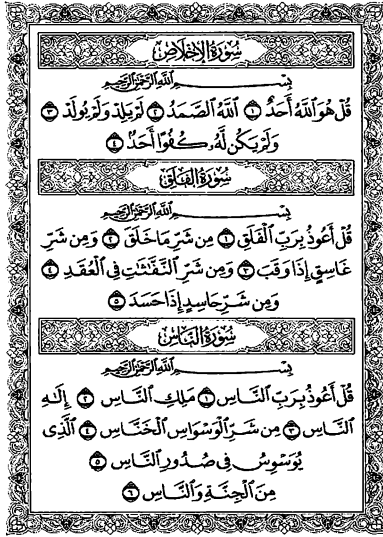 سُورَةُ الإِخْلَاصِ
بِسْمِ ٱللَّهِ ٱلرَّحْمَٰنِ ٱلرَّحِيمِ
قُلْ هُوَ ٱللَّهُ أَحَدٌ ١ ٱللَّهُ ٱلصَّمَدُ ٢ لَمْ يَلِدْ وَلَمْ يُولَدْ ٣
وَلَمْ يَكُن لَّهُۥ كُفُوًا أَحَدٌ ٤
سُورَةُ الفَلَقِ
بِسْمِ ٱللَّهِ ٱلرَّحْمَٰنِ ٱلرَّحِيمِ
قُلْ أَعُوذُ بِرَبِّ ٱلْفَلَقِ ١ مِن شَرِّ مَا خَلَقَ ٢ وَمِن شَرِّ
غَاسِقٍ إِذَا وَقَبَ ٣ وَمِن شَرِّ ٱلنَّفَّٰثَٰتِ فِى ٱلْعُقَدِ ٤
وَمِن شَرِّ حَاسِدٍ إِذَا حَسَدَ ٥
سُورَةُ النَّاسِ
بِسْمِ ٱللَّهِ ٱلرَّحْمَٰنِ ٱلرَّحِيمِ
قُلْ أَعُوذُ بِرَبِّ ٱلنَّاسِ ١ مَلِكِ ٱلنَّاسِ ٢ إِلَٰهِ
ٱلنَّاسِ ٣ مِن شَرِّ ٱلْوَسْوَاسِ ٱلْخَنَّاسِ ٤ ٱلَّذِى
يُوَسْوِسُ فِى صُدُورِ ٱلنَّاسِ ٥
مِنَ ٱلْجِنَّةِ وَٱلنَّاسِ ٦